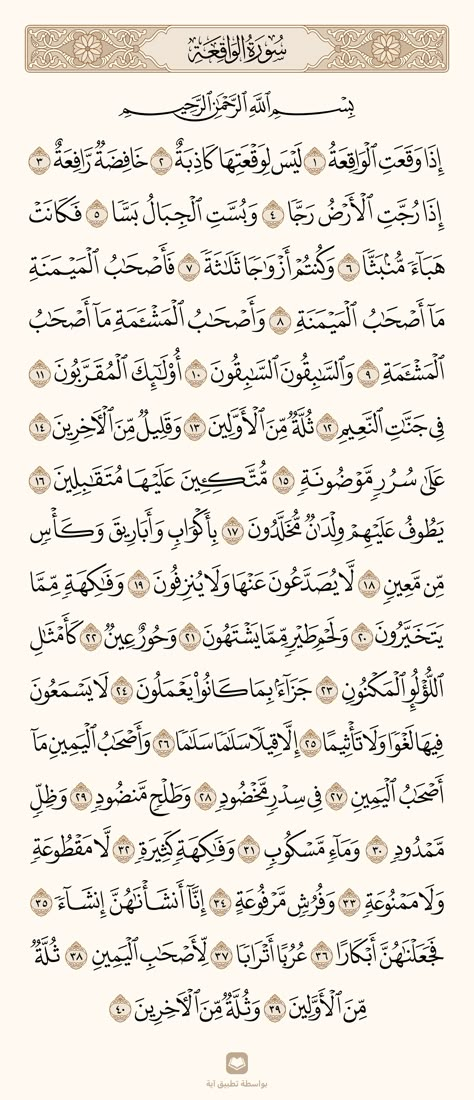 سُورَةُ الوَاقِعَةِ
بِسْمِ اللَّهِ الرَّحْمَٰنِ الرَّحِيمِ
إِذَا وَقَعَتِ ٱلْوَاقِعَةُ ١ لَيْسَ لِوَقْعَتِهَا كَاذِبَةٌ ٢ خَافِضَةٌ رَّافِعَةٌ ٣
إِذَا رُجَّتِ ٱلْأَرْضُ رَجًّا ٤ وَبُسَّتِ ٱلْجِبَالُ بَسًّا ٥ فَكَانَتْ
هَبَآءً مُّنۢبَثًّا ٦ وَكُنتُمْ أَزْوَٰجًا ثَلَٰثَةً ٧ فَأَصْحَٰبُ ٱلْمَيْمَنَةِ
مَآ أَصْحَٰبُ ٱلْمَيْمَنَةِ ٨ وَأَصْحَٰبُ ٱلْمَشْـَٔمَةِ مَآ أَصْحَٰبُ
ٱلْمَشْـَٔمَةِ ٩ وَٱلسَّٰبِقُونَ ٱلسَّٰبِقُونَ ١٠ أُو۟لَٰٓئِكَ ٱلْمُقَرَّبُونَ ١١
فِى جَنَّٰتِ ٱلنَّعِيمِ ١٢ ثُلَّةٌ مِّنَ ٱلْأَوَّلِينَ ١٣ وَقَلِيلٌ مِّنَ ٱلْـَٔاخِرِينَ ١٤
عَلَىٰ سُرُرٍ مَّوْضُونَةٍ ١٥ مُّتَّكِـِٔينَ عَلَيْهَا مُتَقَٰبِلِينَ ١٦
يَطُوفُ عَلَيْهِمْ وِلْدَٰنٌ مُّخَلَّدُونَ ١٧ بِأَكْوَابٍ وَأَبَارِيقَ وَكَأْسٍ
مِّن مَّعِينٍ ١٨ لَّا يُصَدَّعُونَ عَنْهَا وَلَا يُنزِفُونَ ١٩ وَفَٰكِهَةٍ مِّمَّا
يَتَخَيَّرُونَ ٢٠ وَلَحْمِ طَيْرٍ مِّمَّا يَشْتَهُونَ ٢١ وَحُورٌ عِينٌ ٢٢ كَأَمْثَٰلِ
ٱللُّؤْلُؤِ ٱلْمَكْنُونِ ٢٣ جَزَآءًۢ بِمَا كَانُوا۟ يَعْمَلُونَ ٢٤ لَا يَسْمَعُونَ
فِيهَا لَغْوًا وَلَا تَأْثِيمًا ٢٥ إِلَّا قِيلًا سَلَٰمًا سَلَٰمًا ٢٦ وَأَصْحَٰبُ ٱلْيَمِينِ مَآ
أَصْحَٰبُ ٱلْيَمِينِ ٢٧ فِى سِدْرٍ مَّخْضُودٍ ٢٨ وَطَلْحٍ مَّنضُودٍ ٢٩ وَظِلٍّ
مَّمْدُودٍ ٣٠ وَمَآءٍ مَّسْكُوبٍ ٣١ وَفَٰكِهَةٍ كَثِيرَةٍ ٣٢ لَّا مَقْطُوعَةٍ
وَلَا مَمْنُوعَةٍ ٣٣ وَفُرُشٍ مَّرْفُوعَةٍ ٣٤ إِنَّآ أَنشَأْنَٰهُنَّ إِنشَآءً ٣٥
فَجَعَلْنَٰهُنَّ أَبْكَارًا ٣٦ عُرُبًا أَتْرَابًا ٣٧ لِّأَصْحَٰبِ ٱلْيَمِينِ ٣٨ ثُلَّةٌ
مِّنَ ٱلْأَوَّلِينَ ٣٩ وَثُلَّةٌ مِّنَ ٱلْـَٔاخِرِينَ ٤٠
بواسطة تطبيق آية